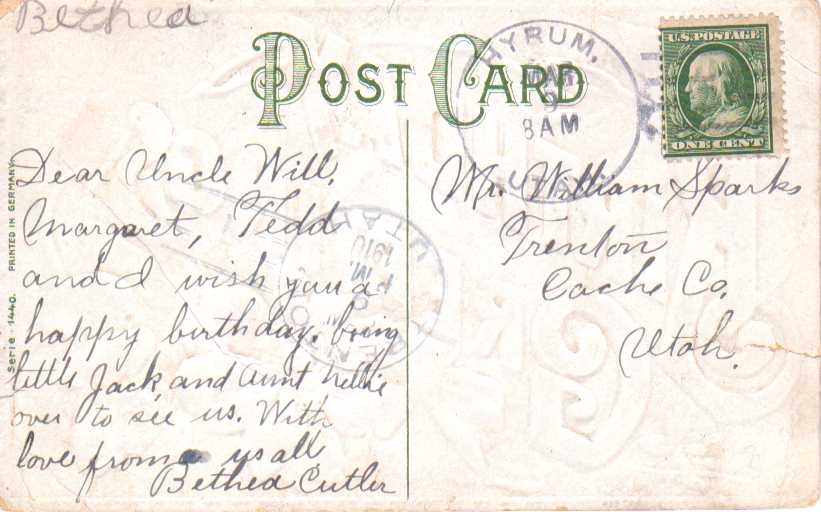 Bethea
POST CARD
HYRUM,
MAR
9
8 AM
UTAH
U.S. POSTAGE
ONE CENT
Dear Uncle Will,
Margaret, Tedd
and I wish you a
happy birthday. bring
little Jack, and aunt Nellie
over to see us. With
love from us all
Bethea Cutler
Mr. William Sparks
Trenton
Cache Co.
Utah.
TRENTON
UTAH
P M
1910
Serie - 1440. PRINTED IN GERMANY